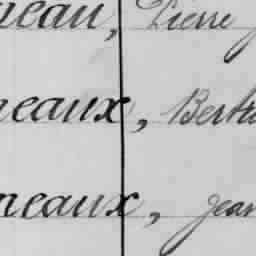 neau, Pierre
neaux, Bertr
neaux, Jean